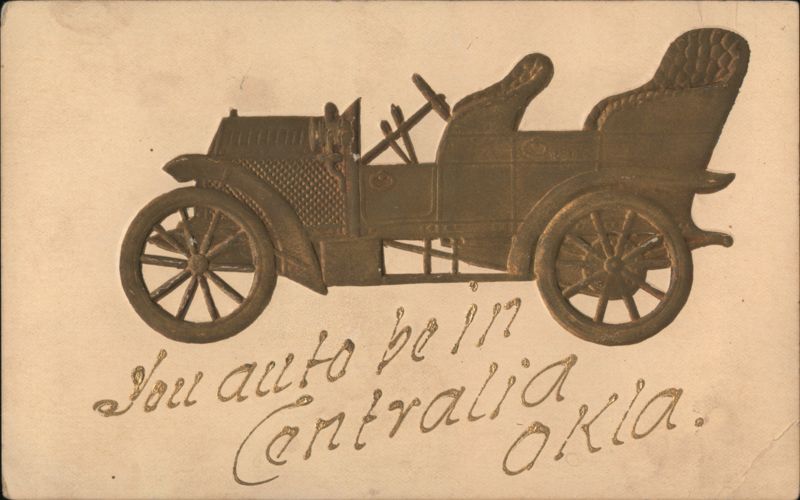 You auto be in
Centralia
Okla.